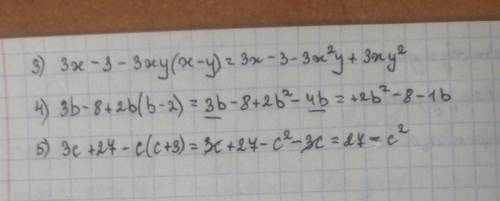 3) 3x - 3 - 3xy(x-y) = 3x - 3 - 3x²y + 3xy²
4) 3b - 8 + 2b(b-2) = 3b - 8 + 2b² - 4b = +2b² - 8 - 1b
5) 3c + 27 - c(c+3) = 3c + 27 - c² - 3c = 27 - c²